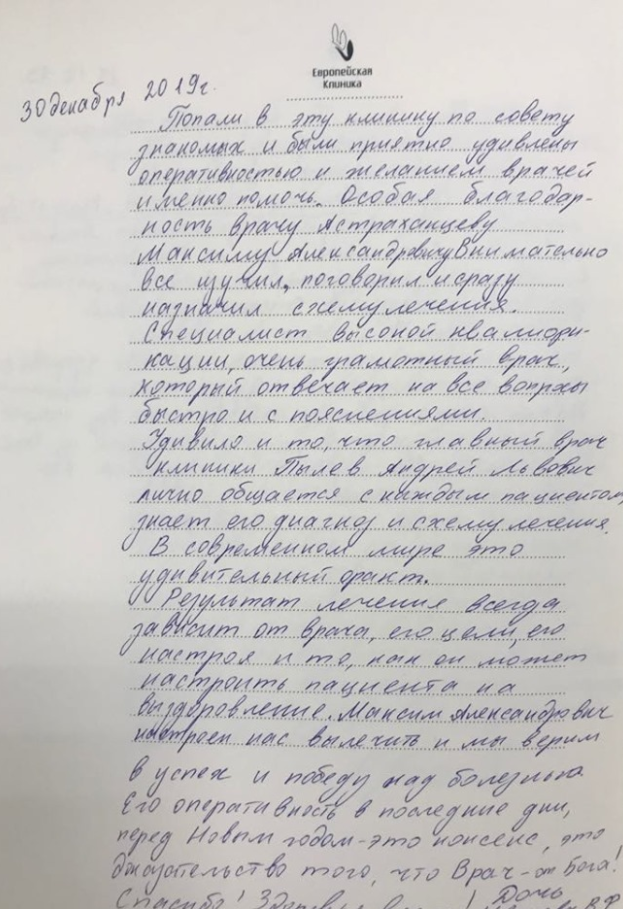 Европейская
Клиника
30 декабря 2019г.
Попали в эту клинику по совету
знакомых и были приятно удивлены
оперативностью и желанием врачей
именно помочь. Особая благодар-
ность врачу Астраханцеву
Максиму Александровичу Внимательно
все изучил, поговорил и сразу
назначил схему лечения.
Специалист высокой квалифи-
кации, очень грамотный врач,
который отвечает на все вопросы
быстро и с пояснениями.
Удивило и то, что главный врач
клиники Пылев Андрей Львович
лично общается с каждым пациентом,
знает его диагноз и схему лечения.
В современном мире это
удивительный факт.
Результат лечения всегда
зависит от врача, его цели, его
настроя и то, как он может
настроить пациента на
выздоровление. Максим Александрович
настроен нас вылечить и мы верим
в успех и победу над болезнью
Его оперативность в последние дни,
перед Новым годом - это нонсенс, это
доказательство того, что Врач - от Бога!
Спасибо! Дочь